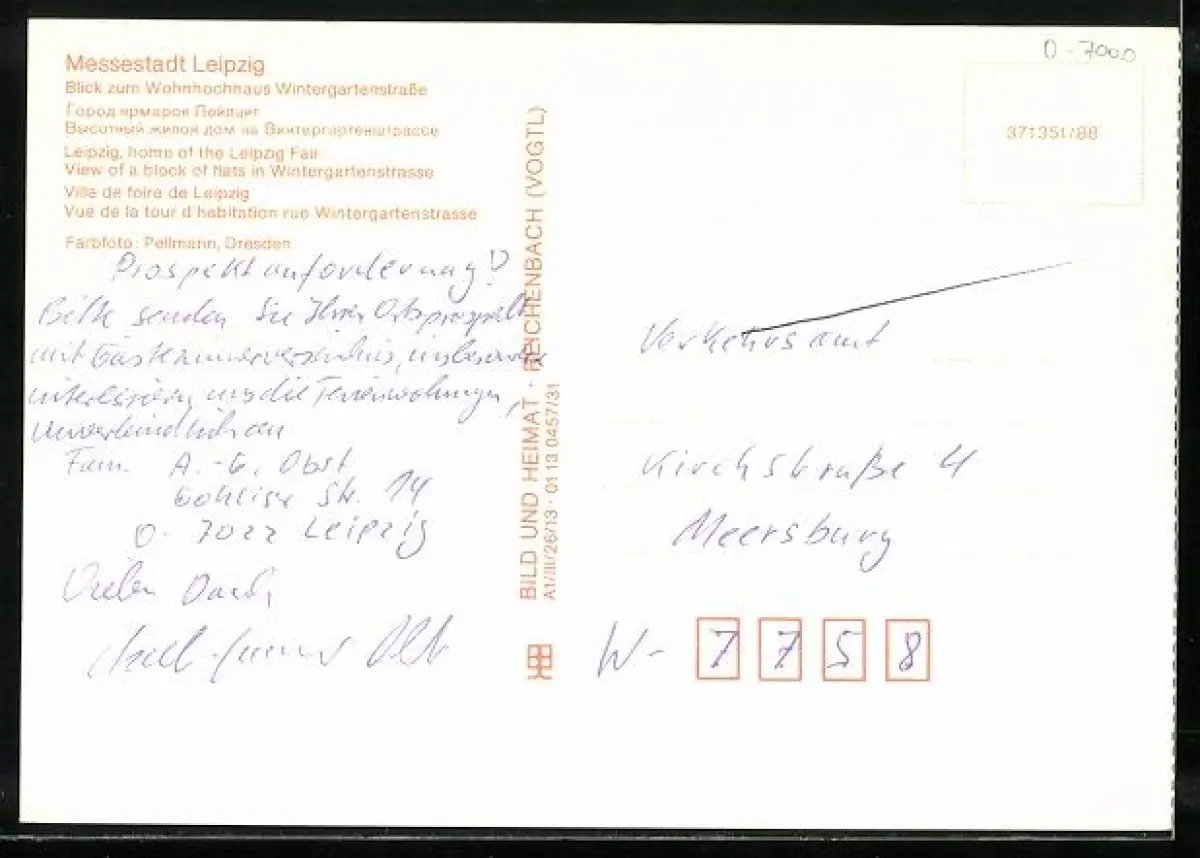 Messestadt Leipzig
Blick zum Wohnhochhaus Wintergartenstraße
Город ярмарок Лейпциг
Высотный жилой дом на Винтергартенштрассе
Leipzig, home of the Leipzig Fair
View of a block of flats in Wintergartenstrasse
Ville de foire de Leipzig
Vue de la tour d'habitation rue Wintergartenstrasse
Farbfoto: Pellmann, Dresden
Prospektanforderung!
Bitte senden Sie Ihren Ortsprospekt
mit Gästezimmerverzeichnis, insbesondere
interessieren uns die Ferienwohnungen,
unverbindlich an
Fam. A.-G. Obst
Gohliser Str. 14
O-7022 Leipzig
Vielen Dank,
BILD UND HEIMAT · REICHENBACH (VOGTL)
A1/III/26/13 · 01 13 0457/31
O-7000
371351/88
Verkehrsamt
Kirchstraße 4
Meersburg
W- 7 7 5 8